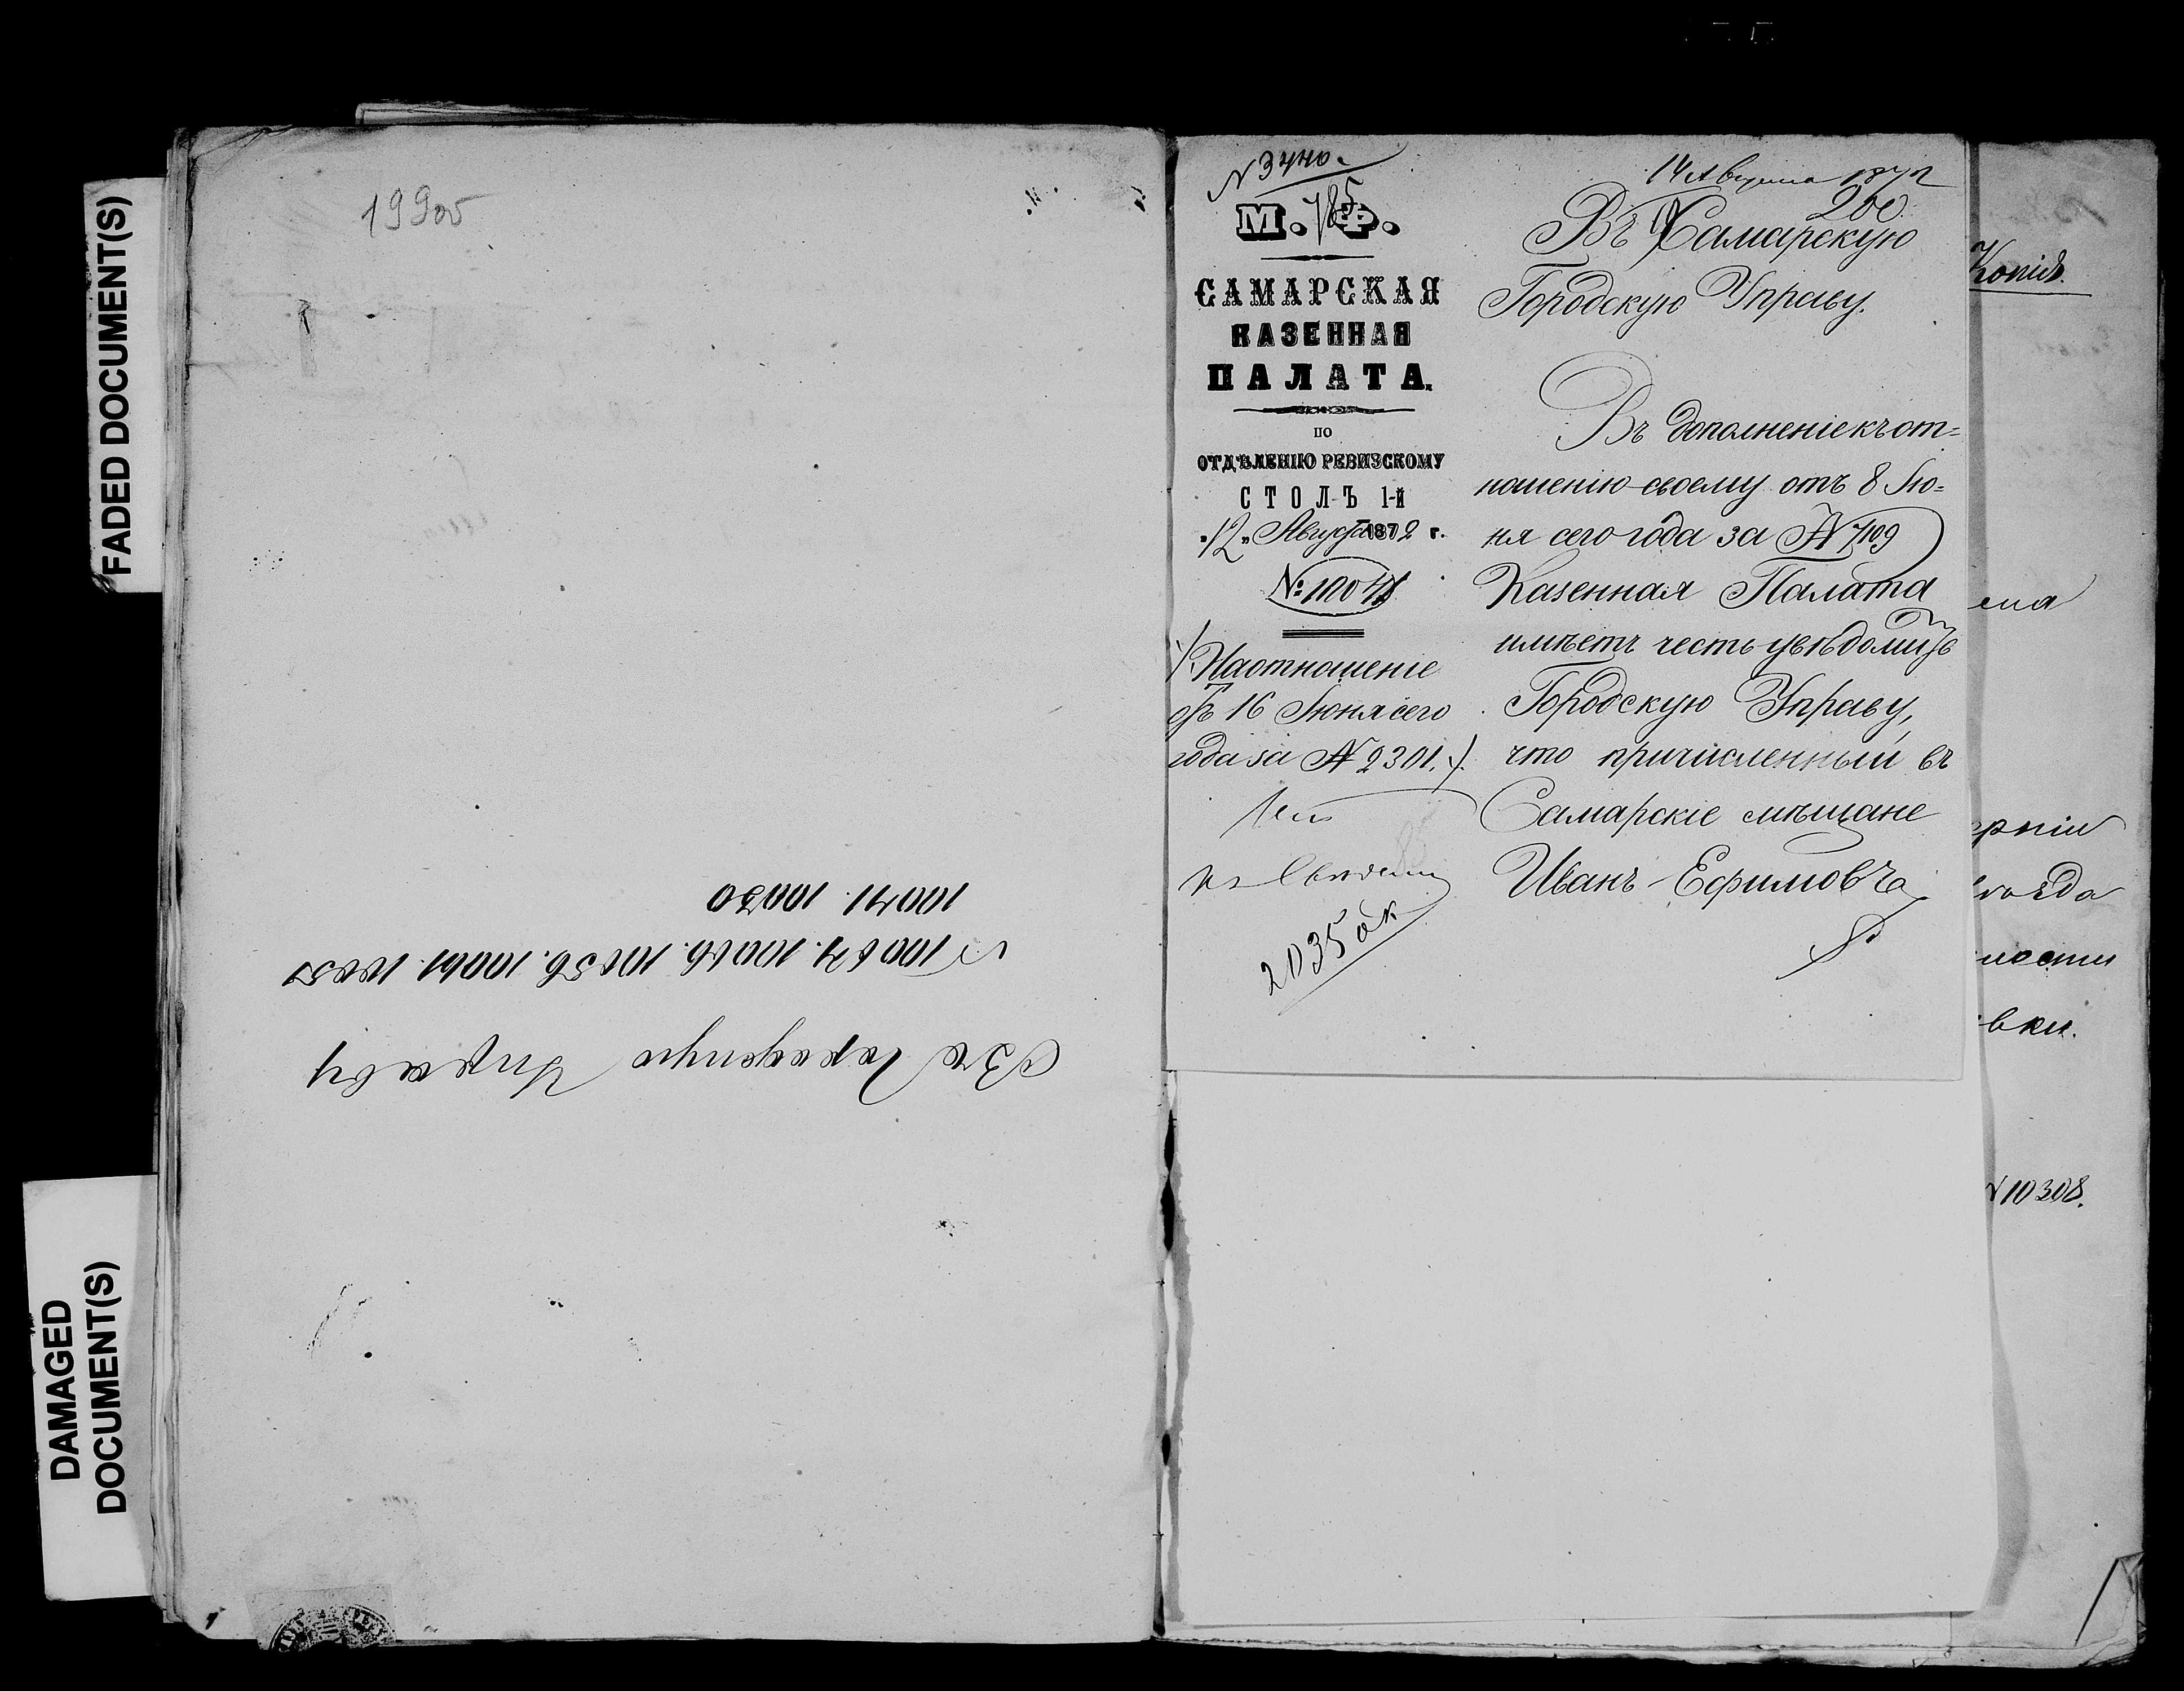 FADED DOCUMENT(S)
DAMAGED
DOCUMENT(S)
199об
Въ Городскую Управу
10071. 10030
№ 3440.
785
М. Ф.
САМАРСКАЯ
КАЗЕННАЯ
ПАЛАТА.
ПО
ОТДѢЛЕНІЮ РЕВИЗСКОМУ
СТОЛЪ 1-й
„12„ Августа 1872 г.
На отношеніе
отъ 16 Іюня сего
года за № 2301.
2035 ок
14 Августа 1872
200
Въ Самарскую
Городскую Управу.
Въ дополненіе къ от=
ношенію своему отъ 8 Ію=
ня сего года за № 7109
Казенная Палата
имѣетъ честь увѣдомить
Городскую Управу,
что причисленный въ
Самарскіе мѣщане
Иванъ Ефимовъ
Копія.
ности
вки.
№ 10308.